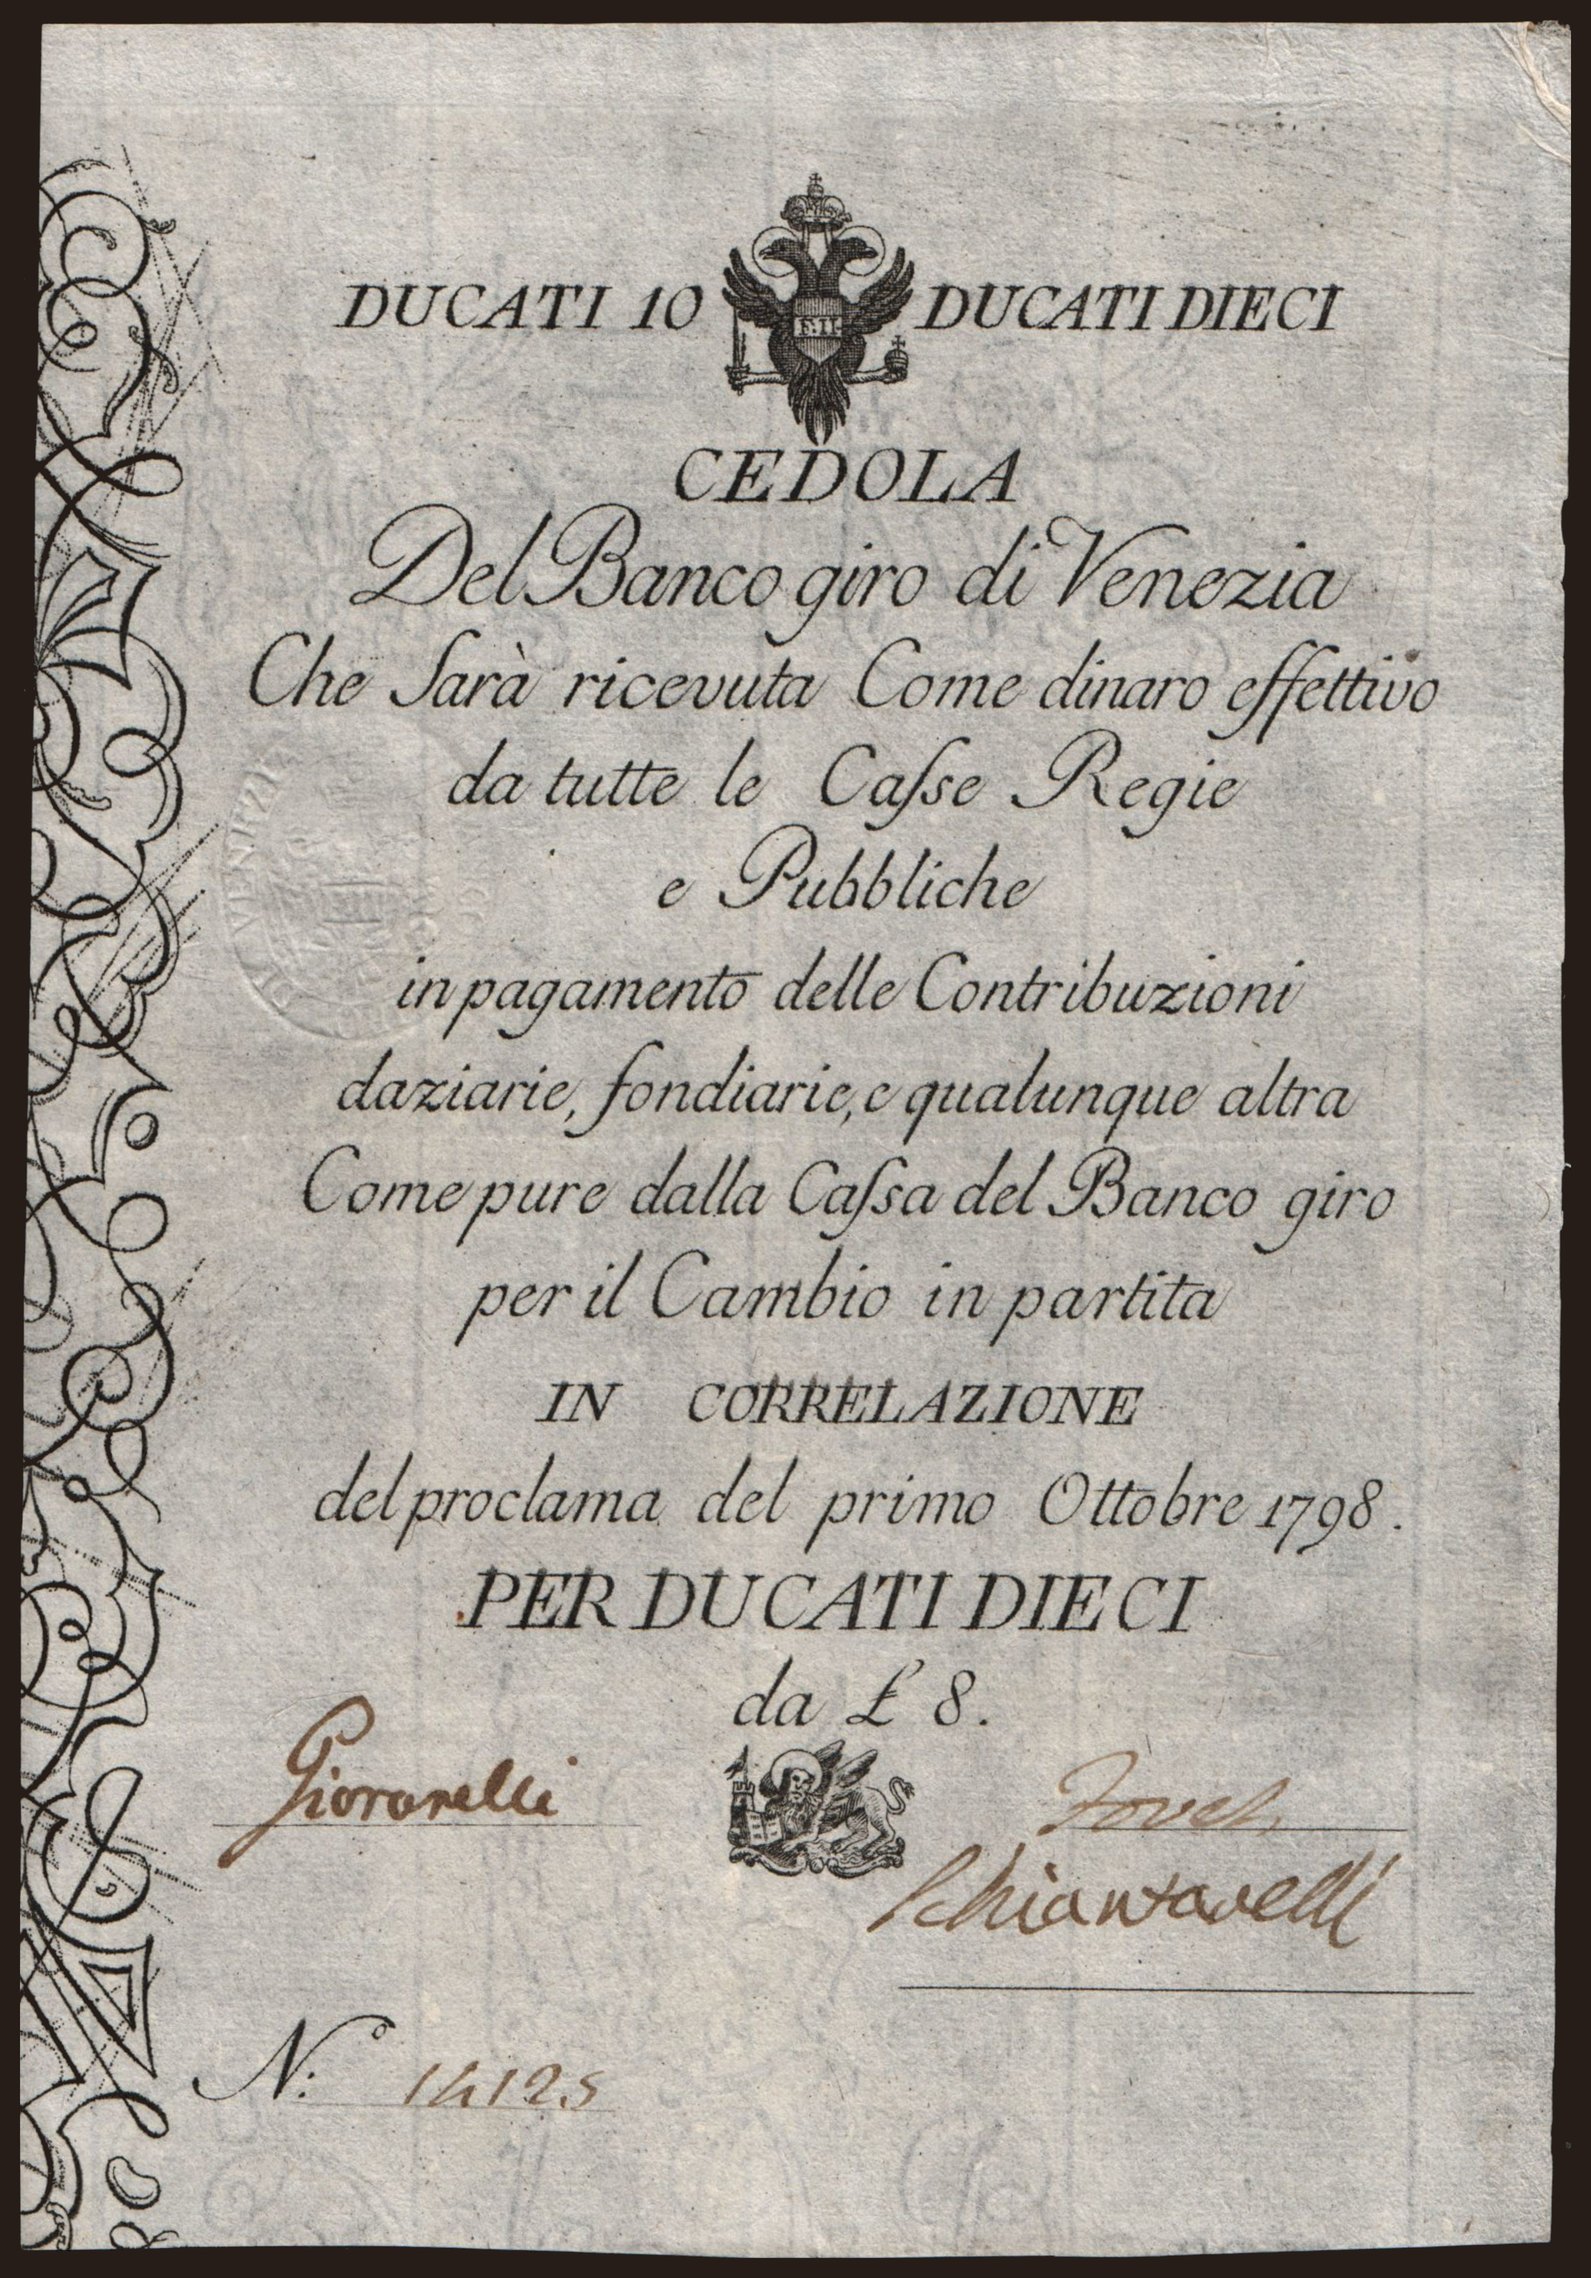 DUCATI 10 F.II. DUCATI DIECI
CEDOLA
Del Banco giro di Venezia
Che Sarà ricevuta Come dinaro effettivo
da tutte le Caſse Regie
e Pubbliche
in pagamento delle Contribuzioni
daziarie, fondiarie, e qualunque altra
Come pure dalla Caſsa del Banco giro
per il Cambio in partita
IN CORRELAZIONE
del proclama del primo Ottobre 1798.
PER DUCATI DIECI
da £ 8.
Giovanelli
N: 14125